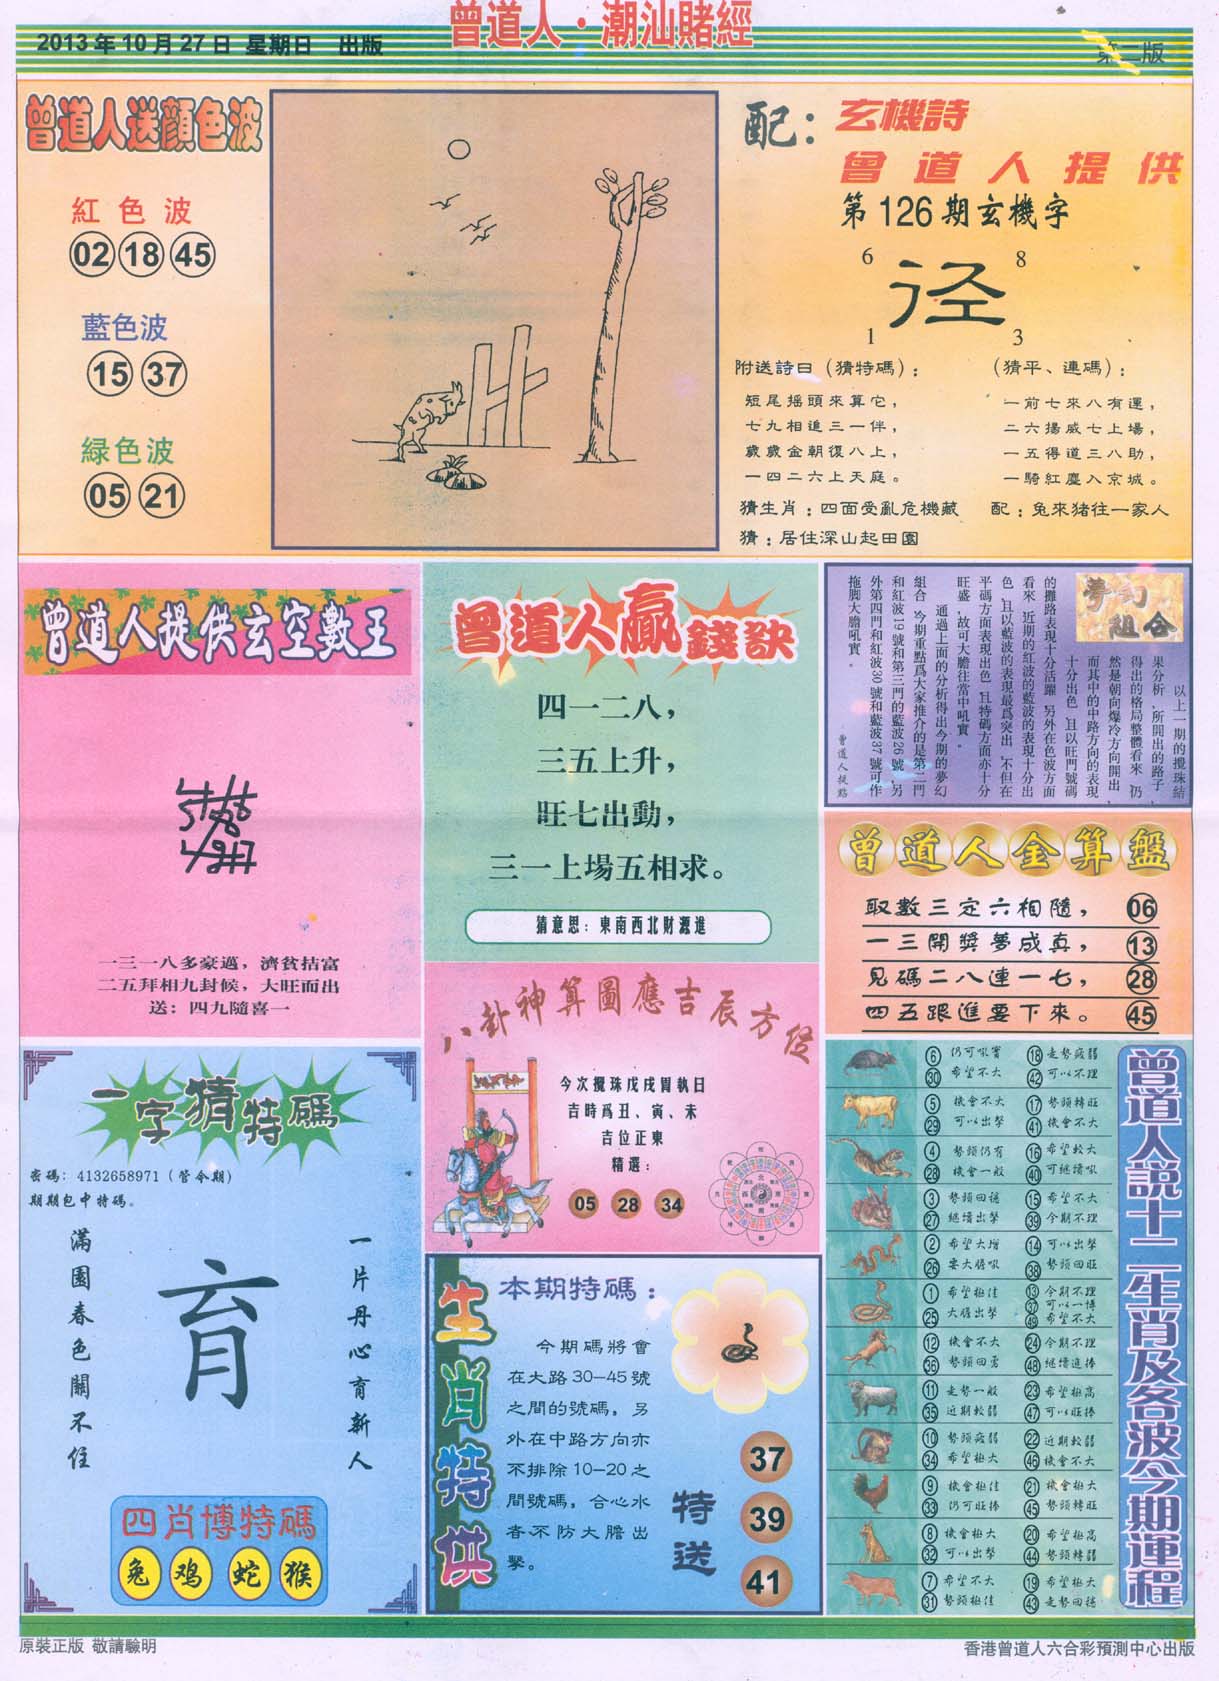 曾道人·潮汕賭經
2013年10月27日 星期日 出版
第二版
曾道人送顏色波
紅色波
02 18 45
藍色波
15 37
緑色波
05 21
配：
玄機詩
曾道人提供
第126期玄機字
6 8
径
1 3
附送詩曰（猜特碼）：
短尾摇頭來算它，
七九相追三一伴，
歲歲金朝復八上，
一四二六上天庭。
（猜平、連碼）：
一前七來八有運，
二六揚威七上場，
一五得道三八助，
一騎紅塵入京城。
猜生肖：四面受亂危機藏
配：兔來猪往一家人
猜：居住深山起田園
曾道人提供玄空數王
一三一八多豪邁，濟貧拮富
二五拜相九封候，大旺而出
送：四九隨喜一
曾道人贏錢訣
四一二八，
三五上升，
旺七出動，
三一上場五相求。
猜意思：東南西北財源進
夢幻
組合
以上一期的攪珠結
果分析﹐所開出的路子﹐
得出的格局整體看來﹐仍
然是朝向爆冷方向開出﹐
而其中的中路方向的表現
十分出色﹐且以旺門號碼
的攤路表現十分活躍﹐另外在色波方面
看來﹐近期的紅波的藍波的表現十分出
色﹐且以藍波的表現最爲突出﹐不但在
平碼方面表現出色﹐且特碼方面亦十分
旺盛﹐故可大膽往當中吼實。
通過上面的分析得出今期的夢幻
組合﹐今期重點爲大家推介的是第二門
和紅波19號和第三門的藍波26號﹐另
外第四門和紅波30號和藍波37號可作
拖脚大膽吼實。
曾道人提點
曾道人金算盤
取數三定六相隨， 06
一三開獎夢成真， 13
見碼二八連一七， 28
四五跟進要下來。 45
八卦神算圖應吉辰方位
今次攪珠戊戌周執日
吉時爲丑、寅、未
吉位正東
精選：
05 28 34
一字猜特碼
密碼：4132658971（管令期）
期期包中特碼。
一片丹心育新人
育
滿園春色關不住
四肖博特碼
兔 鸡 蛇 猴
生肖特供
本期特碼：
今期碼將會
在大路30-45號
之間的號碼，另
外在中路方向亦
不排除10-20之
間號碼，合心水
者不防大膽出
擊。
特送
37
39
41
曾道人説十二生肖及各波今期運程
6 仍可吼實 18 走勢疲弱
30 希望不大 42 可以不理
5 機會不大 17 勢頭轉旺
29 可以出擊 41 機會不大
4 勢頭仍有 16 希望較大
28 機會一般 40 可繼續吼
3 勢頭回穩 15 希望不大
27 繼續出擊 39 今期不理
2 希望大增 14 可以出擊
26 要大膽吼 38 勢頭回旺
1 希望極佳 13 今期不理
37 可以一博
25 大膽出擊 49 希望不大
12 機會不大 24 今期不理
36 勢頭回勇 48 繼續追捧
11 走勢一般 23 希望極高
35 近期較弱 47 可以旺捧
10 勢頭疲弱 22 近期較弱
34 希望極大 46 機會不大
9 機會極佳 21 機會極大
33 仍可旺捧 45 勢頭轉旺
8 機會極大 20 希望極高
32 可以出擊 44 勢頭轉弱
7 希望不大 19 希望極大
31 勢頭極佳 43 走勢回穩
原裝正版 敬請驗明
香港曾道人六合彩預測中心出版